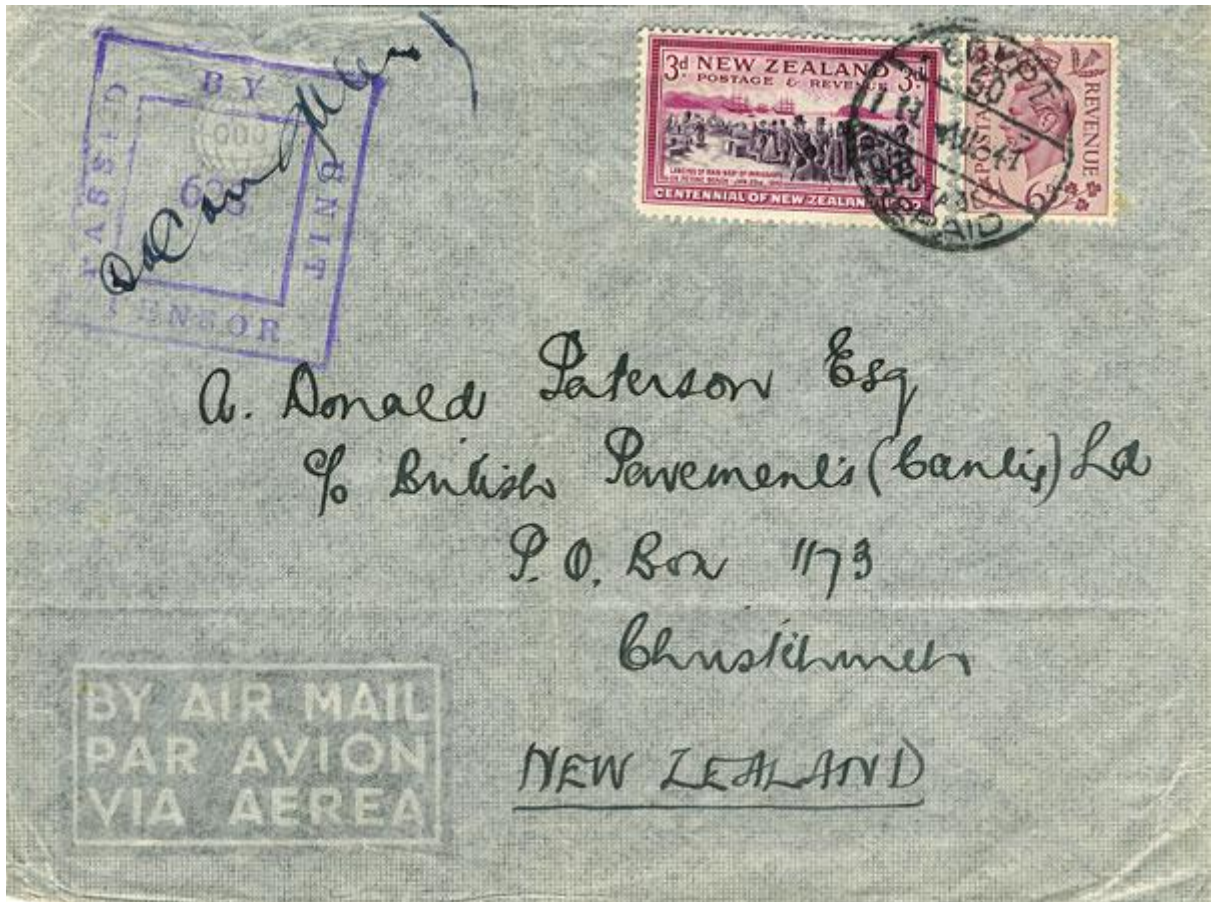 PASSED BY UNIT CENSOR
3d NEW ZEALAND 3d
POSTAGE & REVENUE
LANDING OF IMMIGRANTS
CENTENNIAL OF NEW ZEALAND
POSTAGE REVENUE
6D
EGYPT
PREPAID
A. Donald Paterson Esq
c/o British Pavements (Canty) Ltd
P. O. Box 1173
Christchurch
NEW ZEALAND
BY AIR MAIL
PAR AVION
VIA AEREA